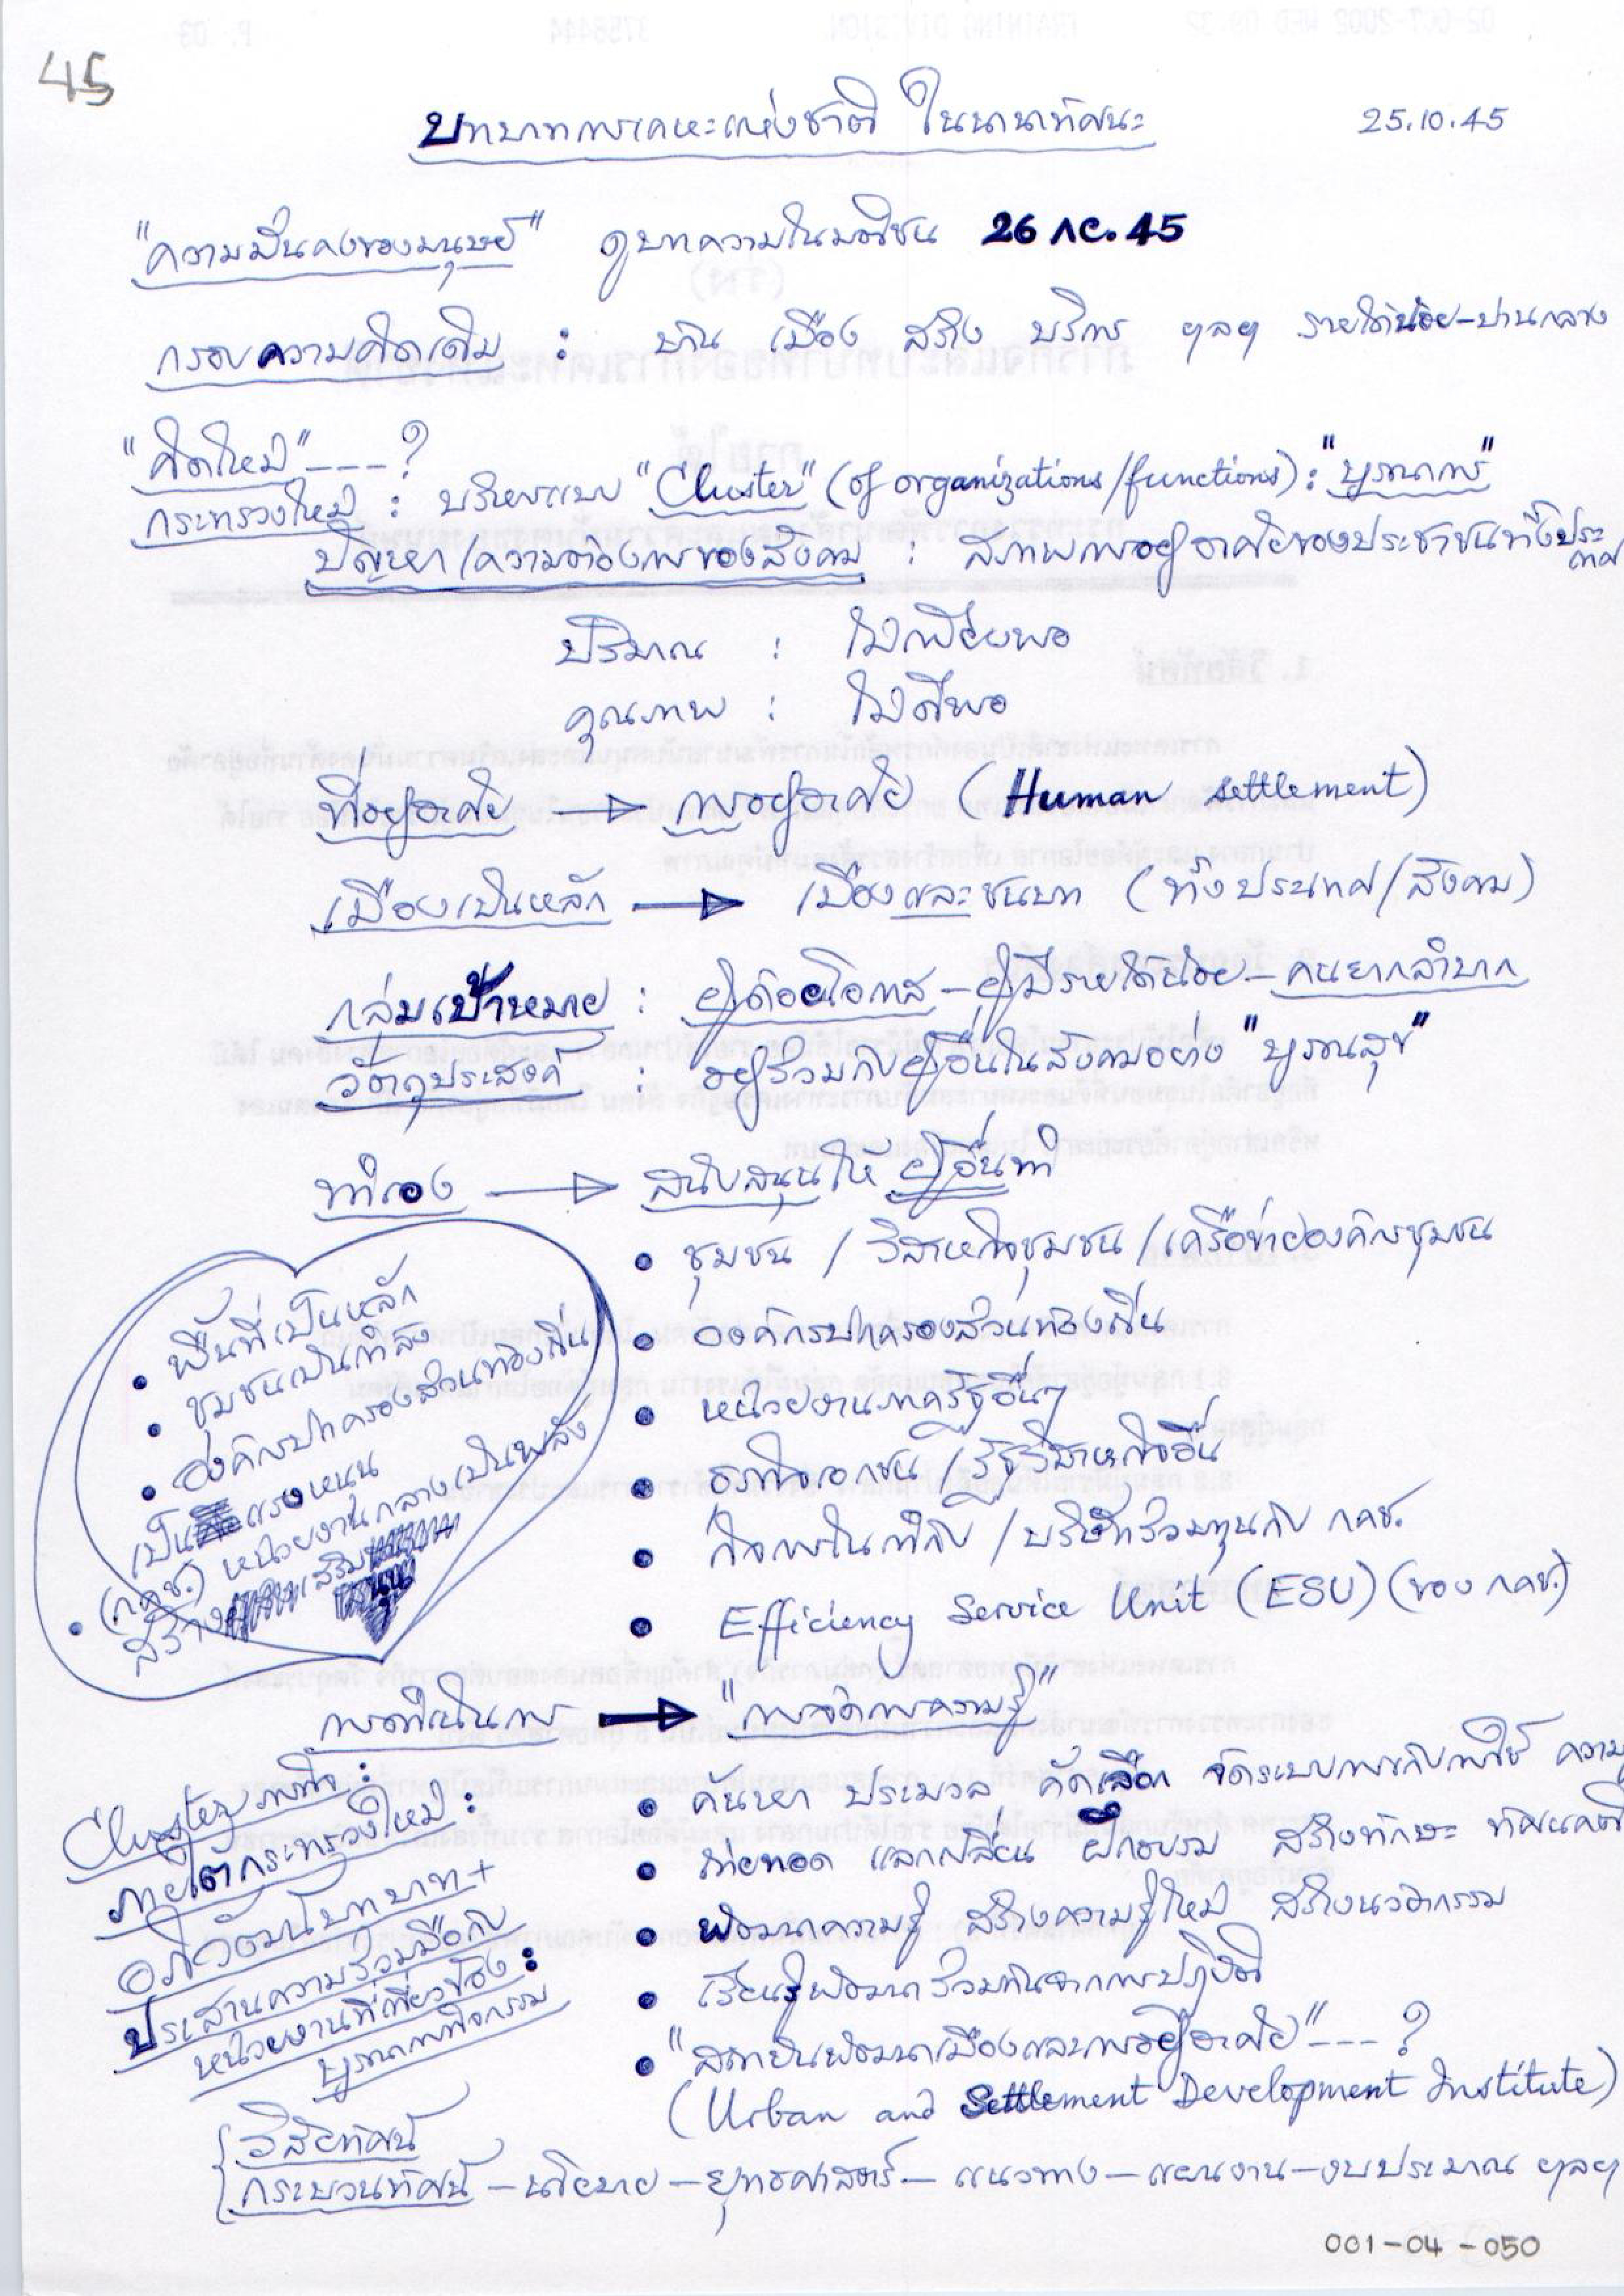 45
บทบาทการเคหะแห่งชาติ ในนานาทัศนะ
25.10.45
"ความมั่นคงของมนุษย์" ดูบทความในมติชน 26 กย. 45
กรอบความคิดเดิม : บ้าน เมือง สร้าง บริการ ฯลฯ รายได้น้อย-ปานกลาง
"คิดใหม่" ---?
กระทรวงใหม่ : บริหารแบบ "Cluster" (of organizations/functions) : "บูรณาการ"
ปัญหา/ความต้องการของสังคม : สภาพการอยู่อาศัยของประชาชนทั้งประเทศ
ปริมาณ : ไม่เพียงพอ
คุณภาพ : ไม่ดีพอ
ที่อยู่อาศัย → การอยู่อาศัย (Human Settlement)
เมืองเป็นหลัก → เมืองและชนบท (ทั้งประเทศ/สังคม)
กลุ่มเป้าหมาย : ผู้ด้อยโอกาส - ผู้มีรายได้น้อย - คนยากลำบาก
วัตถุประสงค์ : อยู่ร่วมกับผู้อื่นในสังคมอย่าง "บูรณสุข"
ทำเอง → สนับสนุนให้ผู้อื่นทำ
• ชุมชน / วิสาหกิจชุมชน / เครือข่ายองค์กรชุมชน
• องค์กรปกครองส่วนท้องถิ่น
• หน่วยงานภาครัฐอื่นๆ
• ธุรกิจเอกชน / รัฐวิสาหกิจอื่น
• กิจการในกำกับ / บริษัทร่วมทุนกับ กคช.
• Efficiency Service Unit (ESU) (ของ กคช.)
• พื้นที่เป็นหลัก
• ชุมชนเป็นกำลัง
• องค์กรปกครองส่วนท้องถิ่น
เป็นแรงหนุน
• (กคช.) หน่วยงานกลางเป็นพลัง
สร้างเสริม
การดำเนินการ → "การจัดการความรู้"
• ค้นหา ประมวล คัดเลือก จัดระบบการกับการใช้ ความ
• ถ่ายทอด แลกเปลี่ยน ฝึกอบรม สร้างทักษะ ทัศนคติ
• พัฒนาความรู้ สร้างความรู้ใหม่ สร้างนวัตกรรม
• เรียนรู้พัฒนาร่วมกันจากการปฏิบัติ
• "สถาบันพัฒนาเมืองและการอยู่อาศัย" ---?
(Urban and Settlement Development Institute)
Cluster ภารกิจ :
ภายใต้กระทรวงใหม่ :
อภิวัฒน์บทบาท +
ประสานความร่วมมือกับ
หน่วยงานที่เกี่ยวข้อง :
บูรณาการกิจกรรม
วิสัยทัศน์
กระบวนทัศน์ - นโยบาย - ยุทธศาสตร์ - แนวทาง - แผนงาน - งบประมาณ ฯลฯ
001-04-050